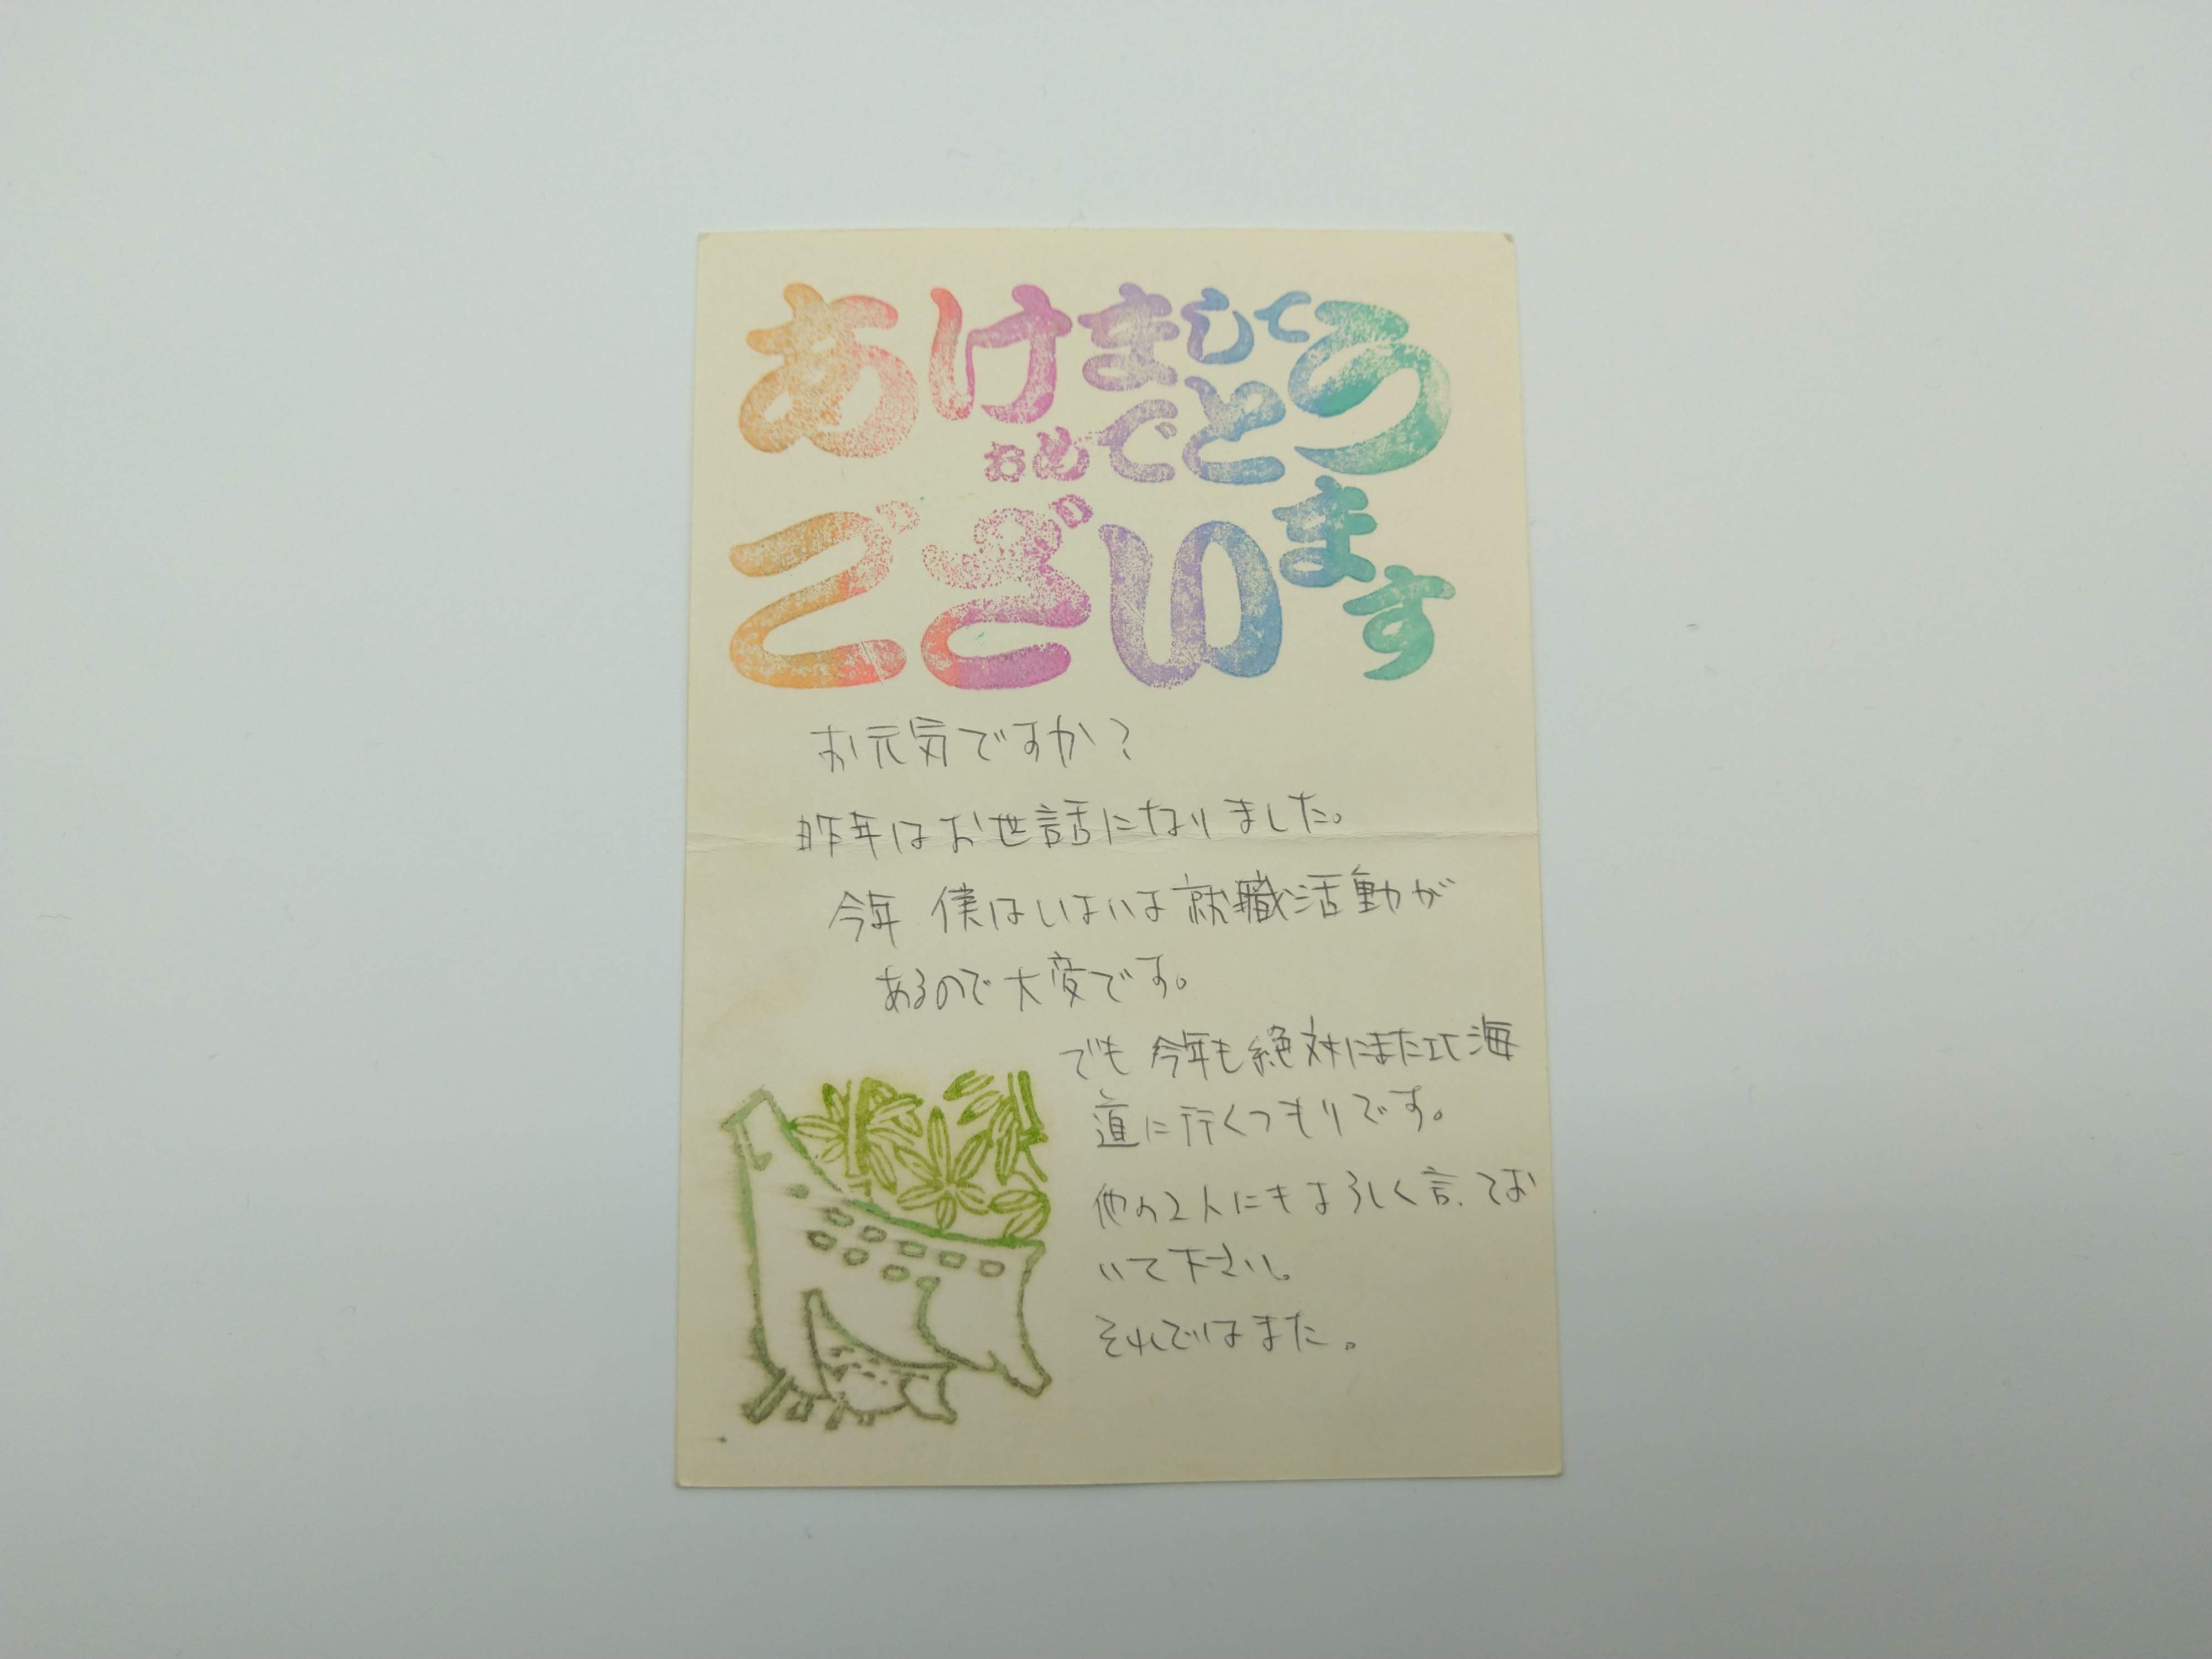 あけまして
おめでとう
ございます
お元気ですか?
昨年はお世話になりました。
今年 僕はいよいよ就職活動が
あるので大変です。
でも 今年も絶対にまた北海
道に行くつもりです。
他の2人にもよろしく言ってお
いて下さい。
それではまた。